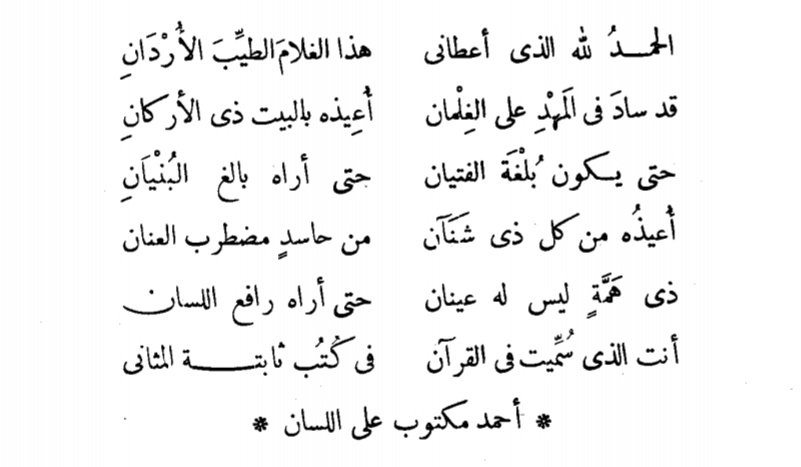 الحمـــدُ لله الذى أعطانى هذا الغلامَ الطيِّبَ الأَرْدَانِ
قد سادَ فى المَهْدِ على الغِلْمان أُعِيذه بالبيت ذى الأركانِ
حتى يـكون بُلْغَةَ الفتيان حتى أراه بالغ البُنْيَانِ
أُعيذُه من كل ذى شَنَآن من حاسدٍ مضطرب العنان
ذى هَمَّةٍ ليس له عينان حتى أراه رافع اللسان
أنت الذى سُمِّيت فى القرآن فى كُتُب ثابتـــــة المثانى
* أحمد مكتوب على اللسان *